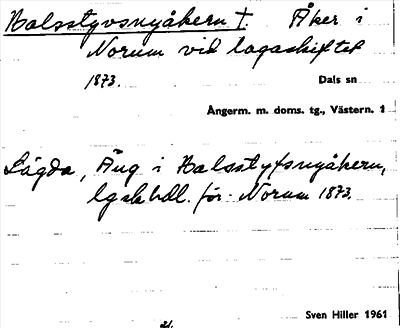 Halsstyvsnyåkern †. Åker i
Norum vid lagaskiftet
1873.
Dals sn
Ångerm. m. doms. tg., Västern. 1
Lägda, Äng i Halsstyfsnyåkern,
lgskhdl. för Norum 1873.
Sven Hiller 1961
21.